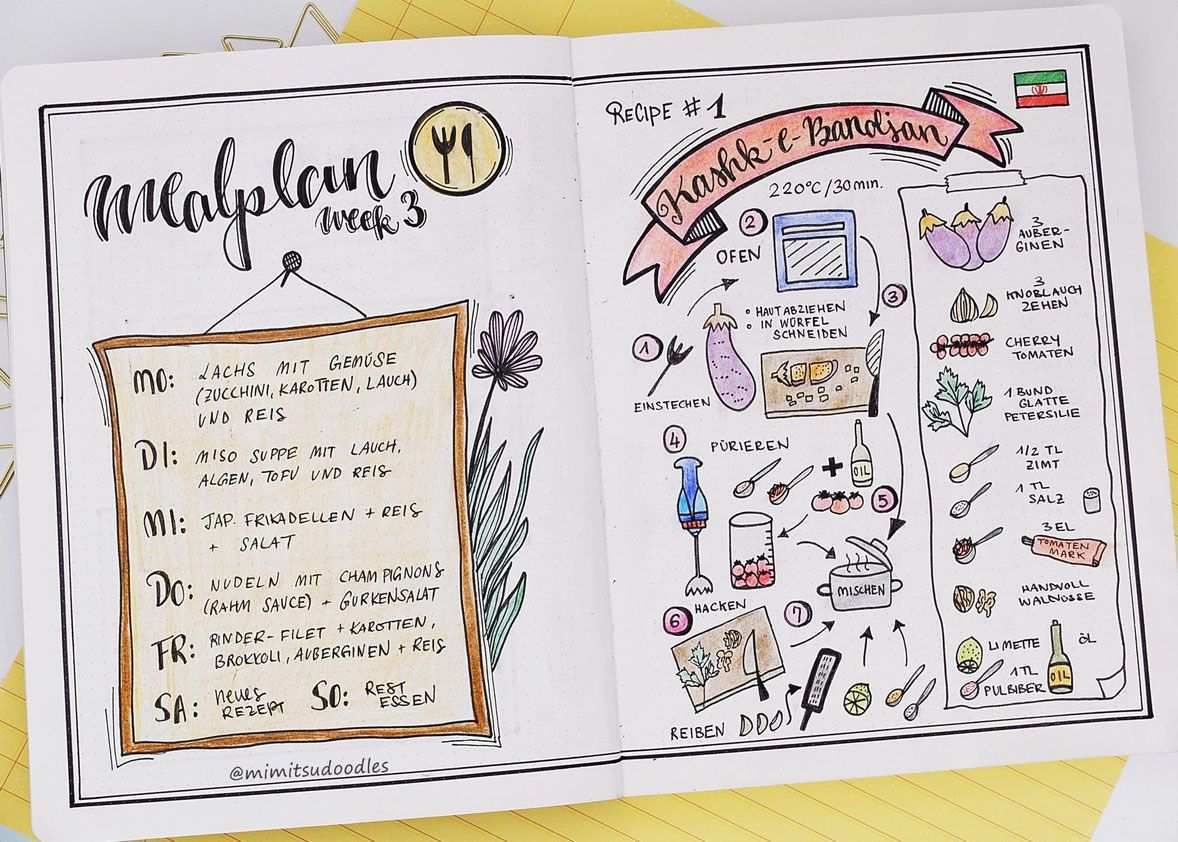 Mealplan
week 3
MO: LACHS MIT GEMÜSE
(ZUCCHINI, KAROTTEN, LAUCH)
UND REIS
DI: MISO SUPPE MIT LAUCH,
ALGEN, TOFU UND REIS
MI: JAP. FRIKADELLEN + REIS
+ SALAT
DO: NUDELN MIT CHAMPIGNONS
(RAHM SAUCE) + GURKENSALAT
FR: RINDER-FILET + KAROTTEN,
BROKKOLI, AUBERGINEN + REIS
SA: neues
REZEPT
SO: REST
ESSEN
@mimitsudoodles
RECIPE #1
Kashk-e-Bandjan
220°C/30min.
2
OFEN
3
• HAUT ABZIEHEN
• IN WÜRFEL
SCHNEIDEN
1
EINSTECHEN
4
PÜRIEREN
+
OIL
5
MISCHEN
6
HACKEN
7
REIBEN
3
AUBER-
GINEN
3
KNOBLAUCH
ZEHEN
CHERRY
TOMATEN
1 BUND
GLATTE
PETERSILIE
1/2 TL
ZIMT
1 TL
SALZ
3 EL
TOMATEN
MARK
HANDVOLL
WALNÜSSE
LIMETTE
ÖL
OIL
1TL
PULBIBER